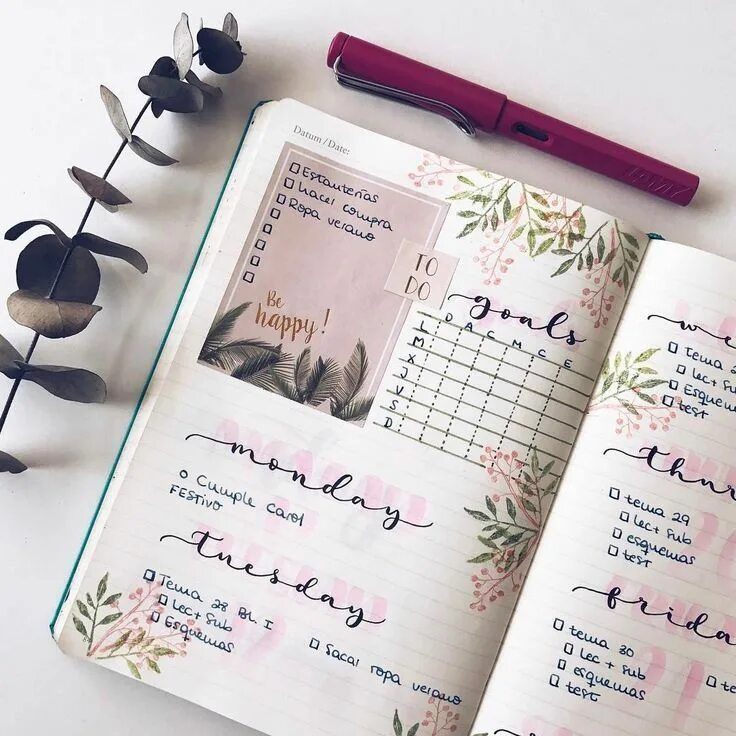 LAMY
Datum / Date:
Estanterías
hacer compra
Ropa verano
Be
happy!
TO
DO
goals
D A C M C E
L
M
X
J
V
S
D
monday
o Cumple Carol
FESTIVO
tuesday
Tema 28 Bl. I
Lec + Sub
Esquemas
Sacar ropa verano
we
Tema
lec + s
Esquemas
test
thur
tema 29
lec + sub
esquemas
test
frida
tema 30
lec + sub
esquemas
test